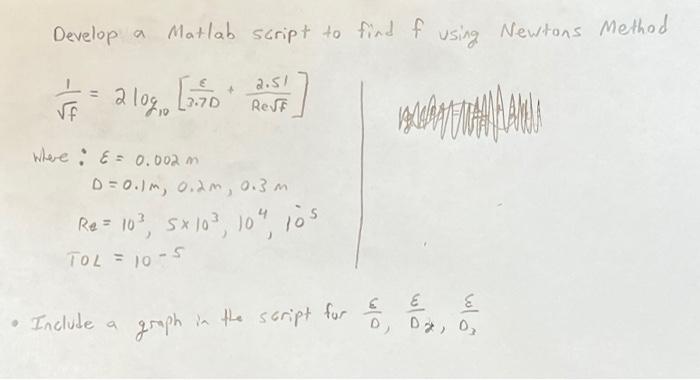 Develop a Matlab script to find f using Newtons Method
1/√f = 2 log₁₀ [ε/3.7D + 2.51/Re√f]
where : ε = 0.002 m
D = 0.1m, 0.2m, 0.3 m
Re = 10³, 5x10³, 10⁴, 10⁵
TOL = 10⁻⁵
• Include a graph in the script for ε/D, ε/D₂, ε/D₃